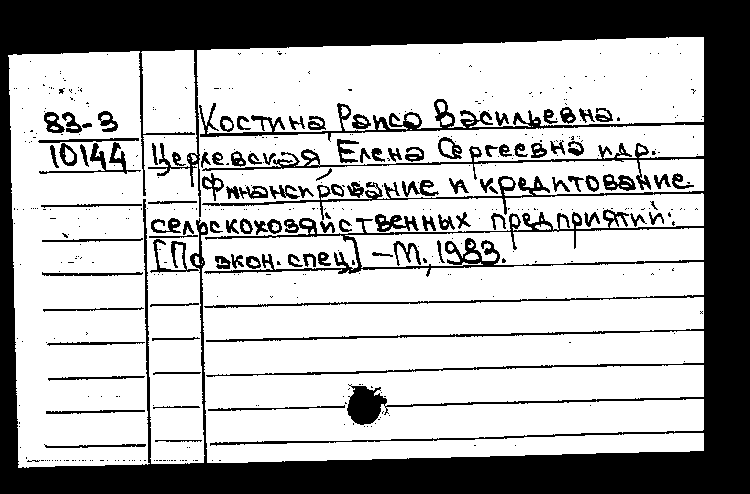 83-3 Костина, Раиса Васильевна.
10144 Церлевская, Елена Сергеевна и др.
Финансирование и кредитование
сельскохозяйственных предприятий:
[По экон. спец.] – М., 1983.